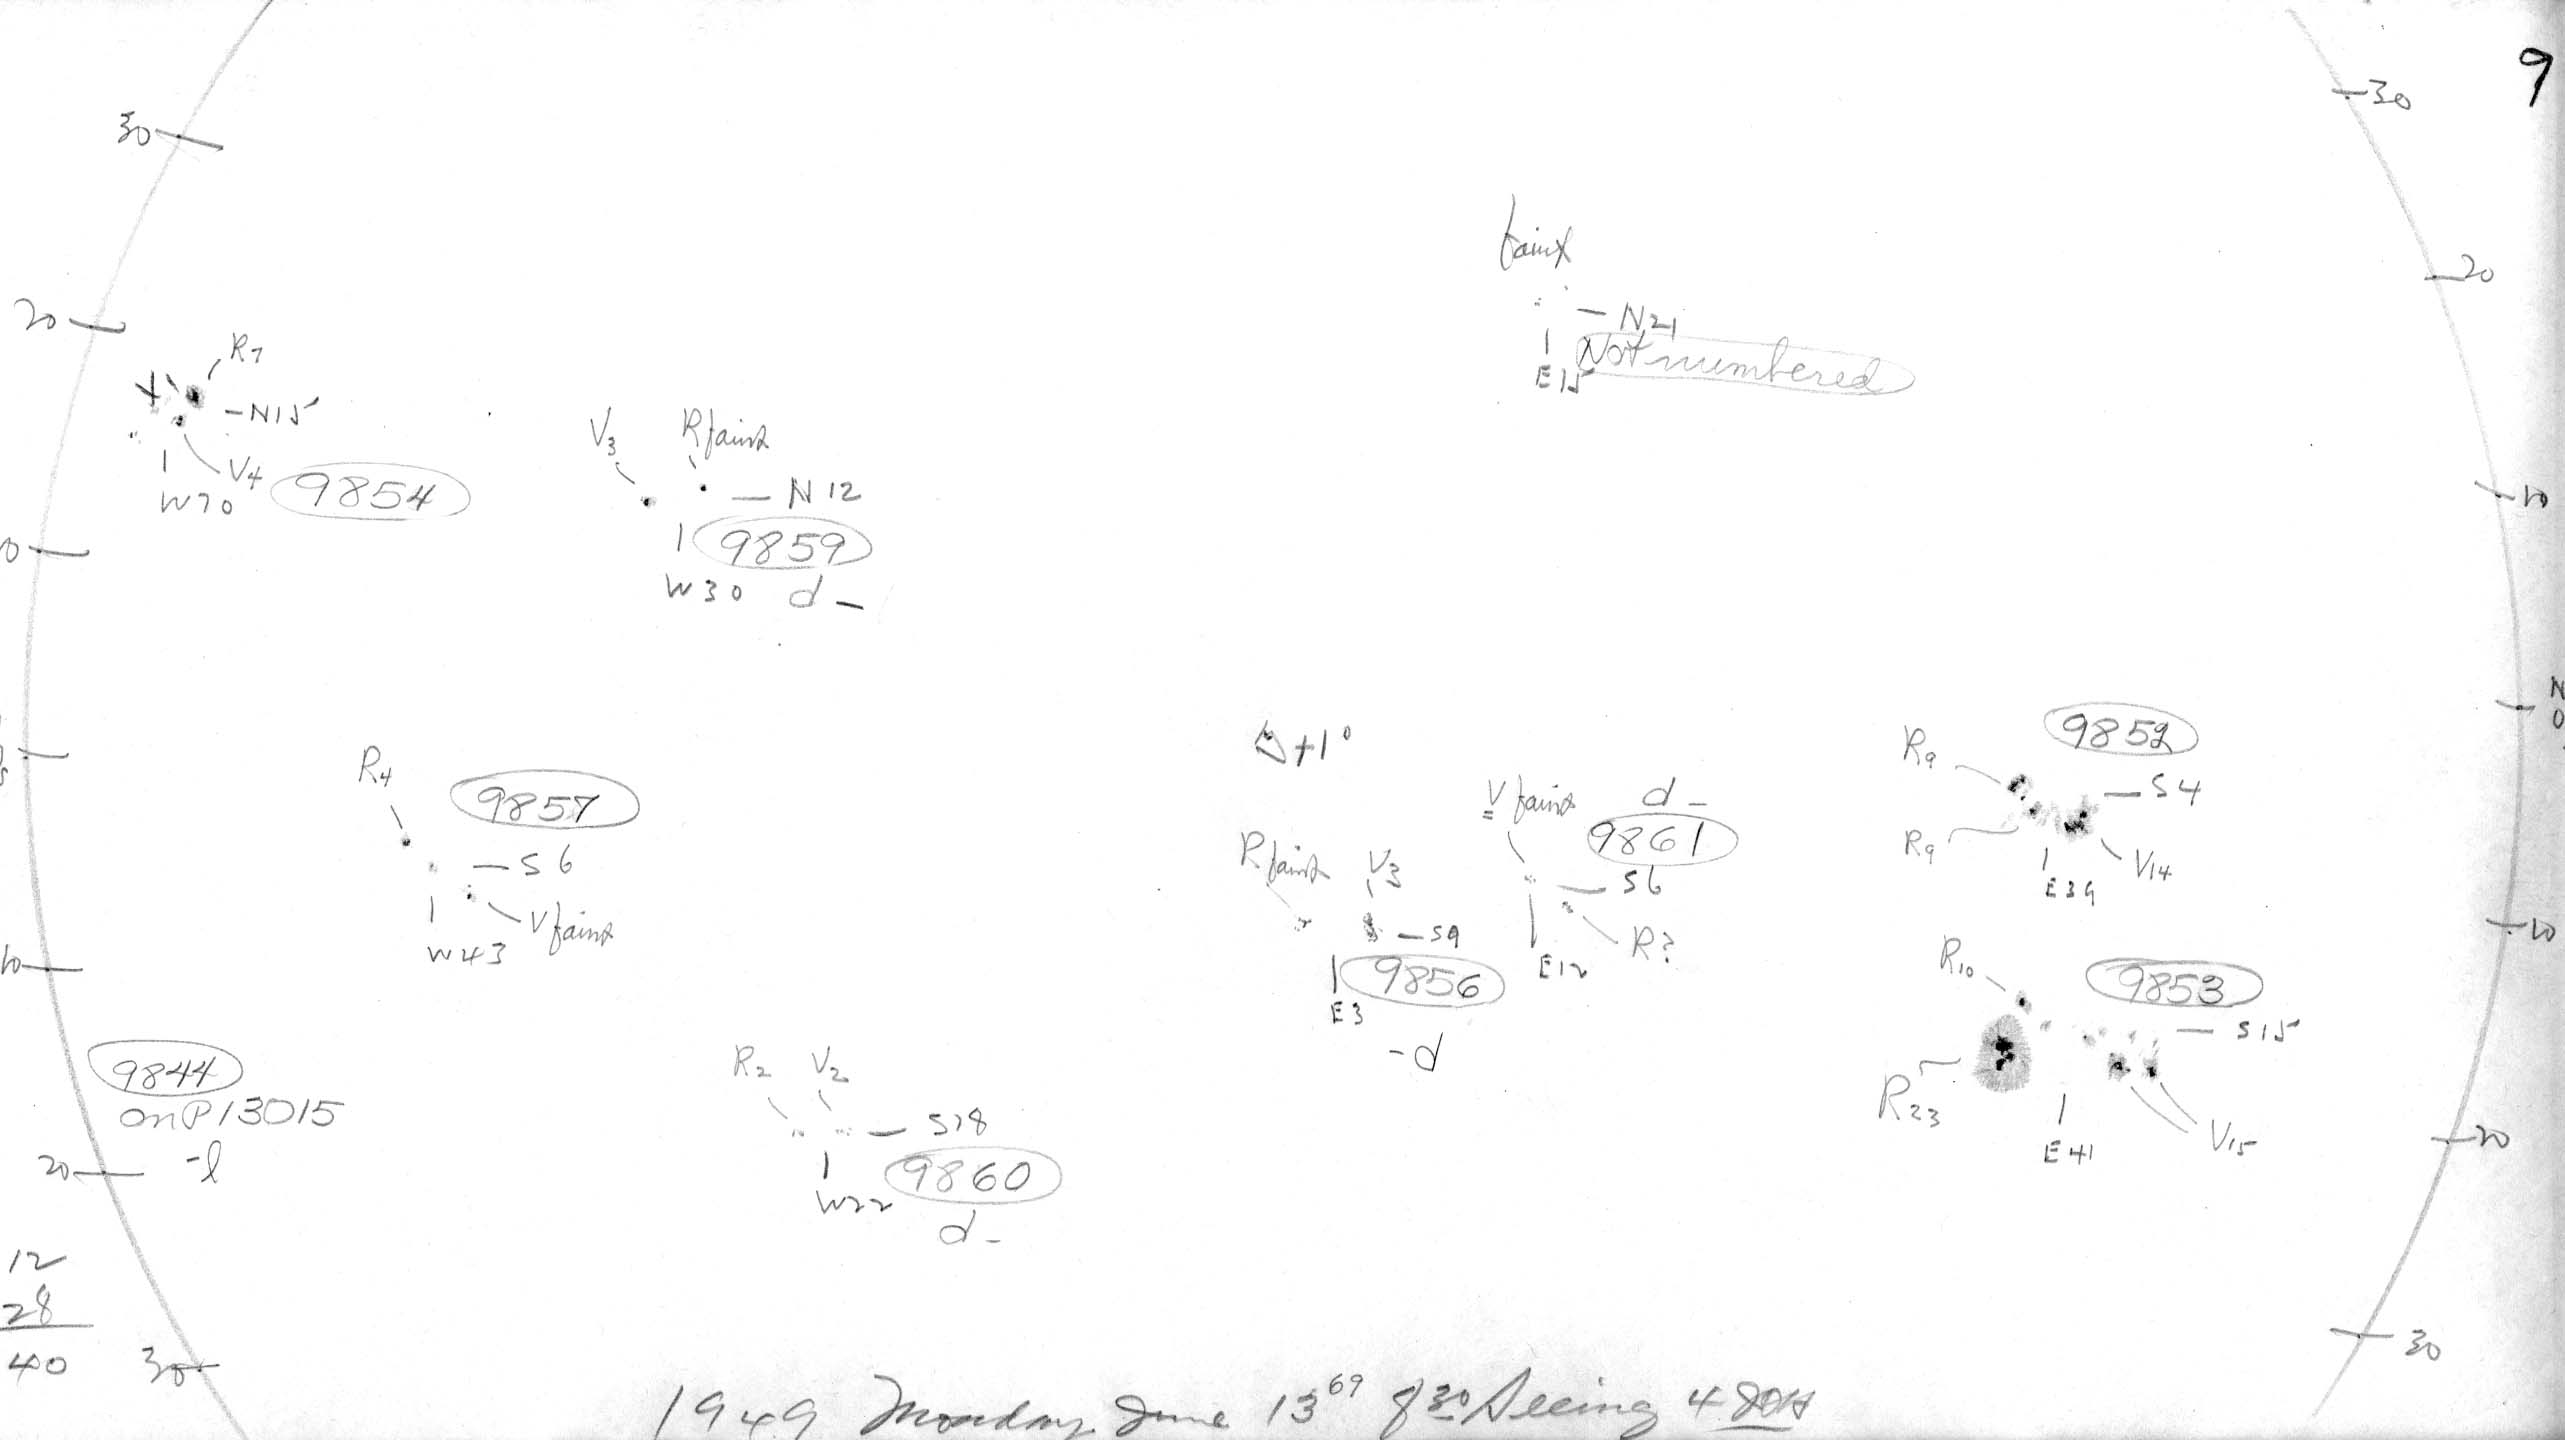 9
30
30
faint
20
20
N21
Not numbered
E15
R7
N15
V4
W70
9854
V3
R faint
N12
9859
W30 d -
10
N
0
Δ+1°
9852
R9
S4
R9
V14
E39
V faint
d -
9861
S6
R?
E12
R faint
V3
S9
9856
E3
-d
R4
9857
S6
V faint
W43
10
10
R10
9853
S15
R23
V15
E41
9844
on P13015
-l
20
20
R2 V2
S18
9860
W22
d -
12
28
40
30
30
1949 Monday June 13 69 8 30 Seeing 4